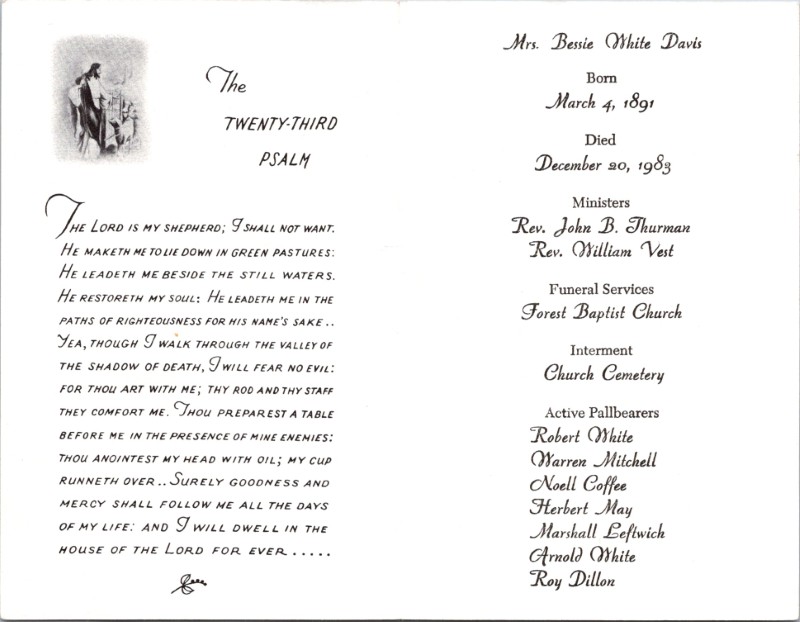 The
TWENTY-THIRD
PSALM
THE LORD IS MY SHEPHERD; I SHALL NOT WANT.
HE MAKETH ME TO LIE DOWN IN GREEN PASTURES:
HE LEADETH ME BESIDE THE STILL WATERS.
HE RESTORETH MY SOUL: HE LEADETH ME IN THE
PATHS OF RIGHTEOUSNESS FOR HIS NAME'S SAKE..
YEA, THOUGH I WALK THROUGH THE VALLEY OF
THE SHADOW OF DEATH, I WILL FEAR NO EVIL:
FOR THOU ART WITH ME; THY ROD AND THY STAFF
THEY COMFORT ME. THOU PREPAREST A TABLE
BEFORE ME IN THE PRESENCE OF MINE ENEMIES:
THOU ANOINTEST MY HEAD WITH OIL; MY CUP
RUNNETH OVER.. SURELY GOODNESS AND
MERCY SHALL FOLLOW ME ALL THE DAYS
OF MY LIFE: AND I WILL DWELL IN THE
HOUSE OF THE LORD FOR EVER.....
Mrs. Bessie White Davis
Born
March 4, 1891
Died
December 20, 1983
Ministers
Rev. John B. Thurman
Rev. William Vest
Funeral Services
Forest Baptist Church
Interment
Church Cemetery
Active Pallbearers
Robert White
Warren Mitchell
Noell Coffee
Herbert May
Marshall Leftwich
Arnold White
Roy Dillon